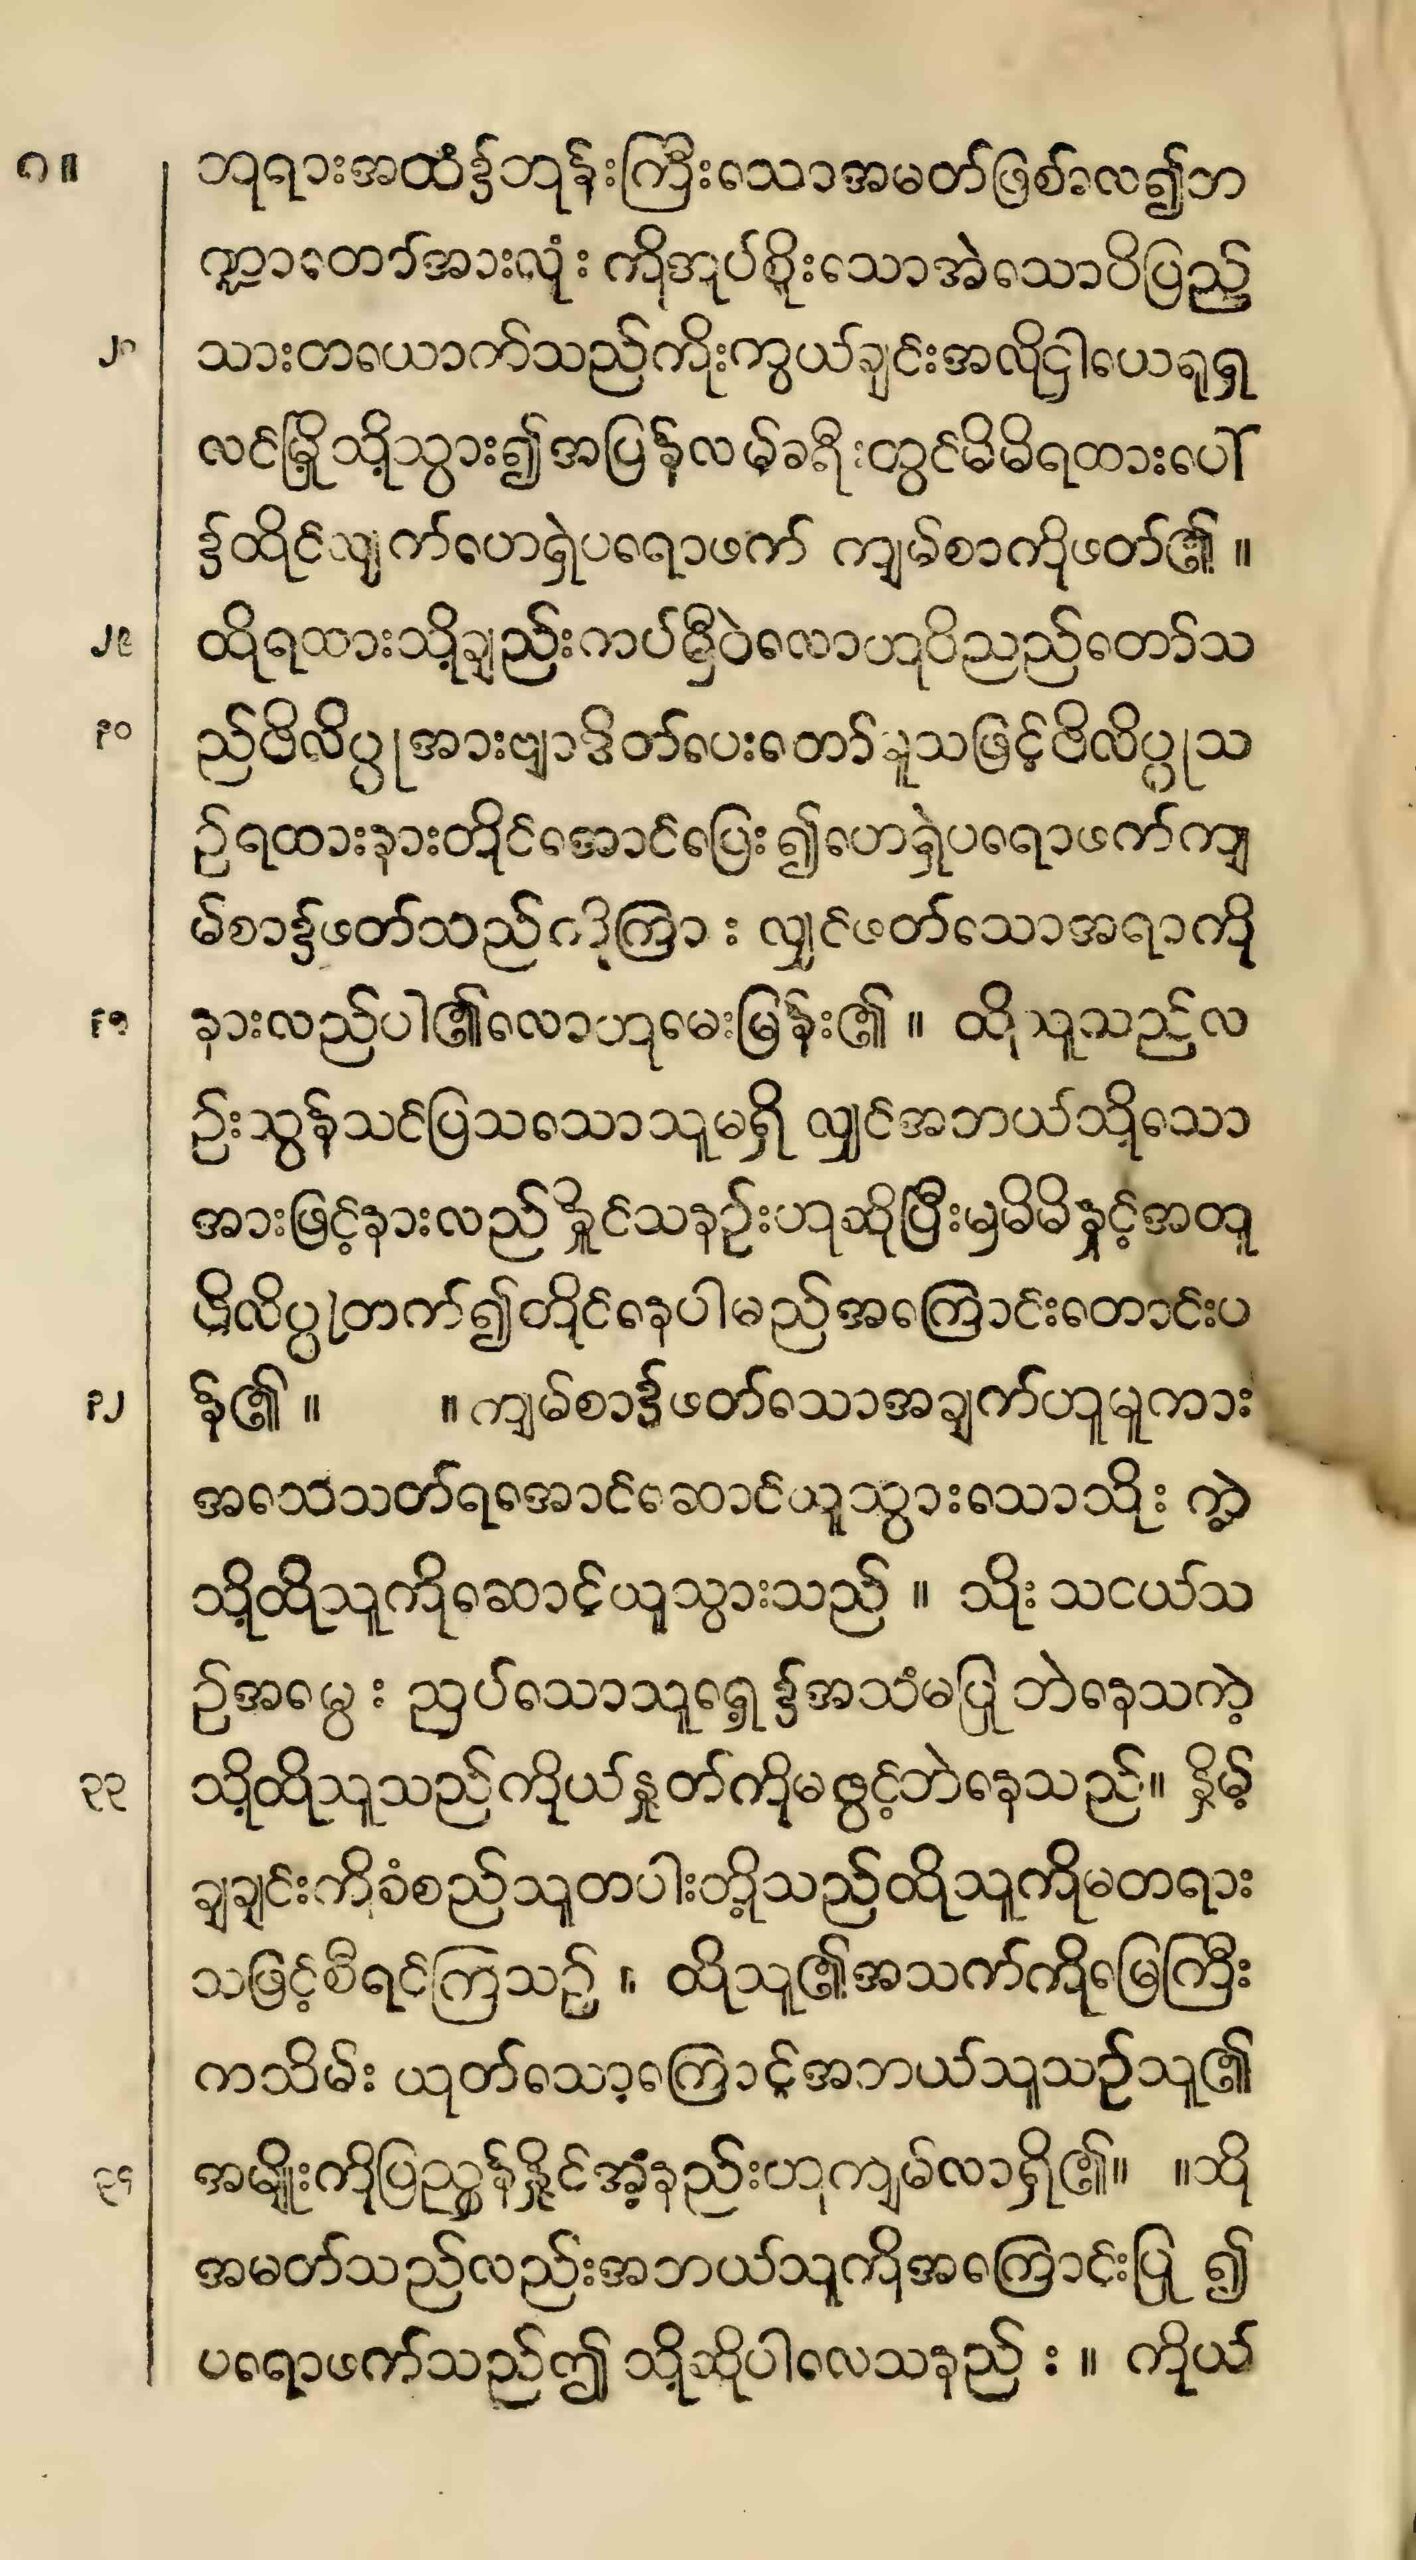 ၈။ ဘုရားအထံ၌ဘုန်းကြီးသောအမတ်ဖြစ်လေ၍ဘ
ဏ္ဍာတော်အားလုံးကိုအုပ်စိုးသောအဲသောပိပြည်
၂၈ သားတယောက်သည်ကိုးကွယ်ချင်းအလို့ငှါယေရုရှ
လင်မြို့သို့သွား၍အပြန်လမ်ခရီးတွင်မိမိရထားပေါ်
၌ထိုင်လျက်ဟေရှဲပရောဖက် ကျမ်စာကိုဖတ်၏။
၂၉ ထိုရထားသို့ချည်းကပ်မှီဝဲလောဟုဝိညည်တော်သ
၃၀ ည်ဖိလိပ္ပုအားဗျာဒိတ်ပေးတော်မူသဖြင့်ဖိလိပ္ပုသ
ဉ်ရထားနားတိုင်အောင်ပြေး၍ဟေရှဲပရောဖက်ကျ
မ်စာ၌ဖတ်သည်ကိုကြား လျှင်ဖတ်သောအရာကို
၃၁ နားလည်ပါ၏လောဟုမေးမြန်း၏။ ထိုသူသည်လ
ဉ်းသွန်သင်ပြသသောသူမရှိ လျှင်အဘယ်သို့သော
အားဖြင့်နားလည်နိုင်သနဉ်းဟုဆိုပြီးမှမိမိနှင့်အတူ
ဖိလိပ္ပုတက်၍တိုင်နေပါမည်အကြောင်းတောင်းပ
၃၂ န်၏။ ။ကျမ်စာ၌ဖတ်သောအချက်ဟူမူကား
အသေသတ်ရအောင်ဆောင်ယူသွားသောသိုး ကဲ့
သို့ထိုသူကိုဆောင့်ယူသွားသည်။ သိုးသငယ်သ
ဉ်အမွေးညှပ်သောသူရှေ့၌အသံမပြုဘဲနေသကဲ့
၃၃ သို့ထိုသူသည်ကိုယ်နှုတ်ကိုမဖွင့်ဘဲနေသည်။ နှိမ့်
ချချင်းကိုခံစည်သူတပါးတို့သည်ထိုသူကိုမတရား
သဖြင့်စီရင်ကြသဉ်။ ထိုသူ၏အသက်ကိုမြေကြီး
ကသိမ်းယုတ်သော့ကြောင့်အဘယ်သူသဉ်သူ၏
၃၄ အမျိုးကိုပြညွှန်နှိုင်အံ့နည်းဟုကျမ်လာရှိ၏။ ။ထို
အမတ်သည်လည်းအဘယ်သူကိုအကြောင်းပြု၍
ပရောဖက်သည်ဤသို့ဆိုပါလေသနည်း။ ကိုယ်